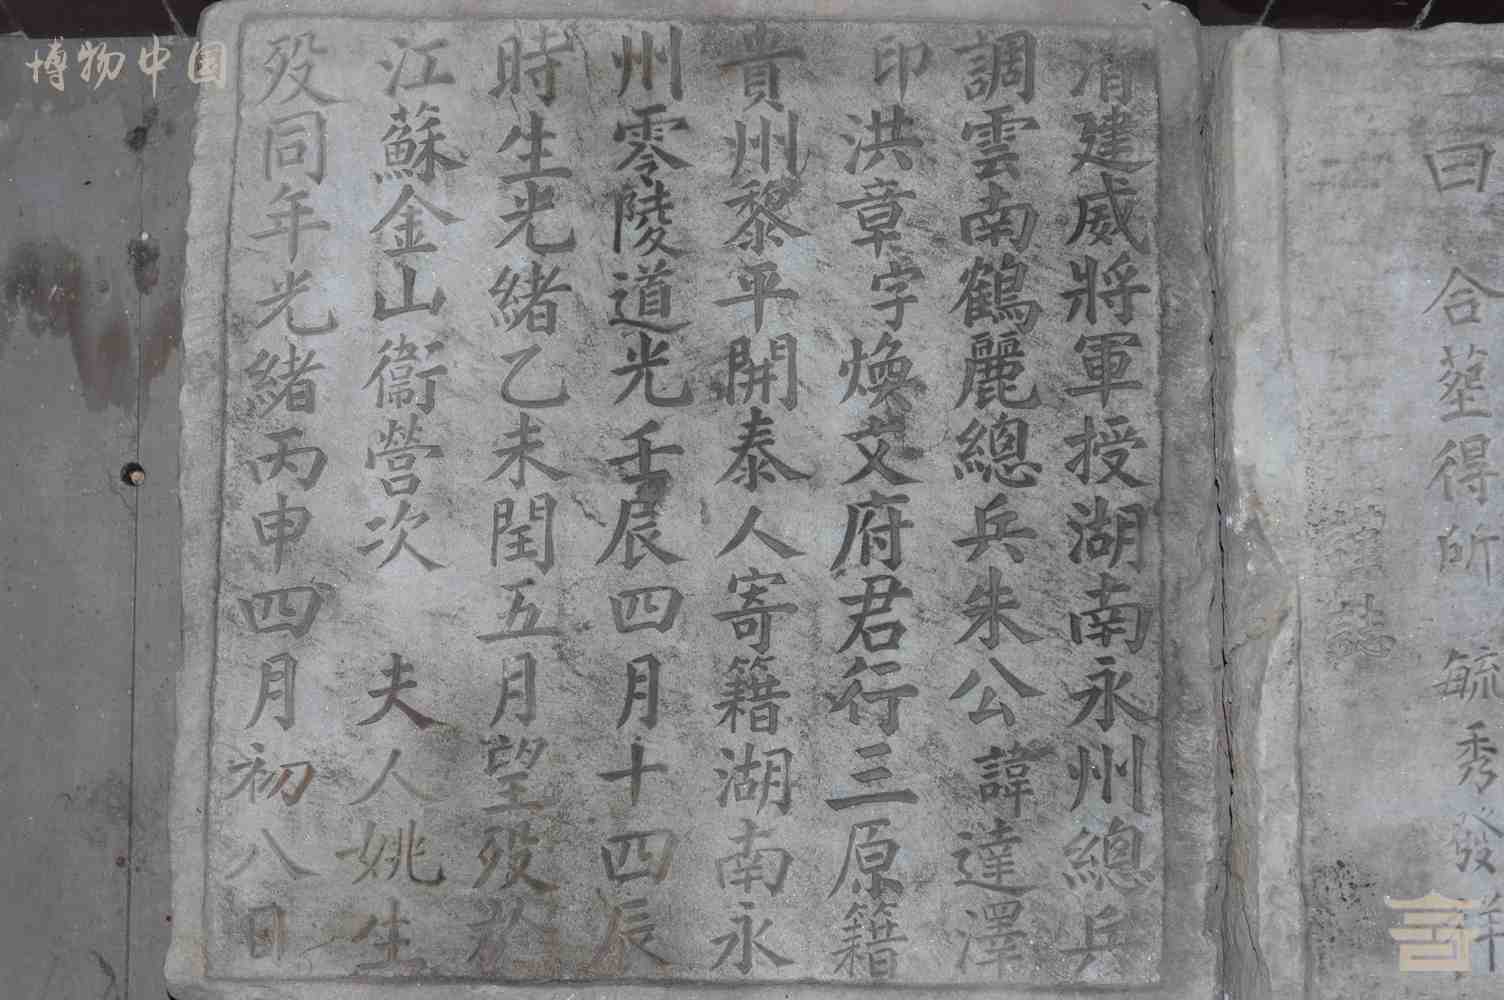 曰 合塟得所 毓秀發祥
謹誌
清建威將軍授湖南永州總兵
調雲南鶴麗總兵朱公諱達澤
印洪章字煥文府君行三原籍
貴州黎平開泰人寄籍湖南永
州零陵道光壬辰四月十四辰
時生光緒乙未閏五月望歿於
江蘇金山衞營次 夫人姚生
歿同年光緒丙申四月初八日
博物中国